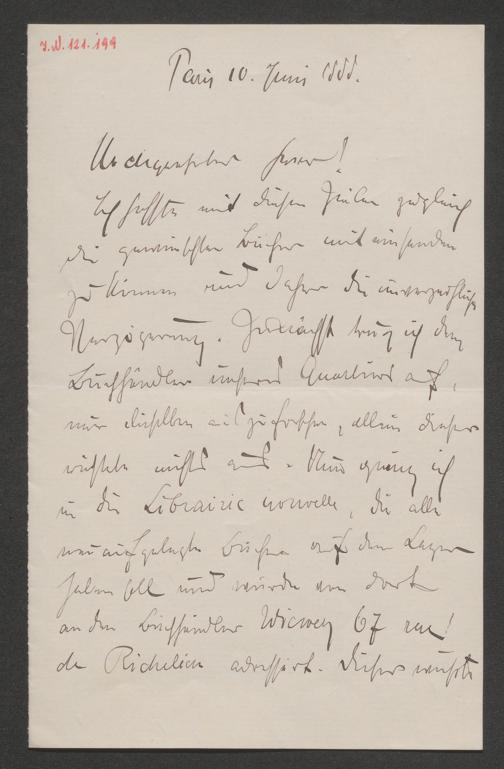 J.N. 121.199
Paris 10. Juni 1888.
Hochgeehrter Herr!
Ich hoffte mit diesen Zeilen zugleich
die gewünschten Bücher mit einsenden
zu können und daher die unverzeihliche
Verzögerung. Zunächst trug ich dem
Buchhändler unseres Quartiers auf,
mir dieselben auszuforschen, allein dieser
richtete nichts aus. Nun ging ich
in die Librairie nouvelle, die alle
neu aufgelegten Bücher auf dem Lager
haben soll und wurde von dort
an den Buchhändler 67 rue
de Richelieu adressirt. Dieser wußte